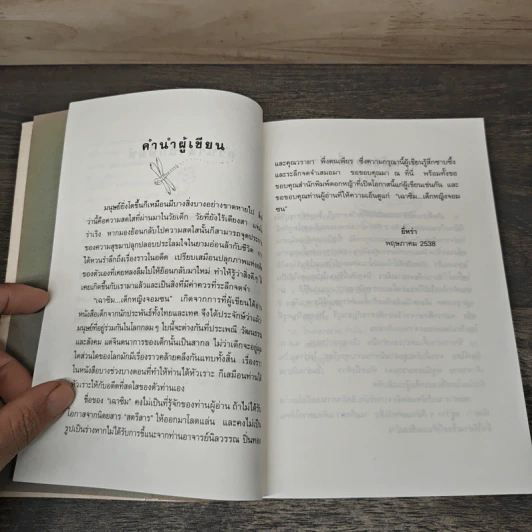 คำนำผู้เขียน
มนุษย์ยิ่งโตขึ้นก็เหมือนมีบางสิ่งบางอย่างขาดหายไป
ว่านี้คือความสดใสที่ผ่านมาในวัยเด็ก วัยที่ยังไร้เดียงสา
ร่าเริง หากมองย้อนกลับไปความสดใสนั้นก็สามารถจุดประกาย
ของความสุขมาปลุกปลอบประโลมใจในยามอ่อนล้ากับชีวิต
ได้หวนรำลึกถึงเรื่องราวในอดีต เปรียบเสมือนปลุกภาพแห่ง
ของตัวเองที่เคยหลงลืมไปให้ย้อนกลับมาใหม่ ทำให้รู้ว่าสิ่งดีๆ
เคยเกิดขึ้นกับเรามาแล้วและเป็นสิ่งที่มีค่าควรที่จะระลึกจดจำ
"เฉาซิม...เด็กหญิงจอมซน" เกิดจากการที่ผู้เขียนได้อ่าน
หนังสือเด็กจากนักประพันธ์ทั้งไทยและเทศ จึงได้ประจักษ์ว่า
มนุษย์ที่อยู่ร่วมกันในโลกกลม ๆ ใบนี้จะต่างกันที่ประเพณี วัฒนธรรม
และสังคม แต่จินตนาการของเด็กนั้นเป็นสากล ไม่ว่าเด็กจะอยู่
ใดส่วนใดของโลกมักมีเรื่องราวคล้ายคลึงกันแทบทั้งสิ้น
ในหนังสือบางช่วงบางตอนที่ทำให้ท่านได้หัวเราะ ก็เสมือนท่านได้
หัวเราะให้กับอดีตที่สดใสของตัวท่านเอง
ชื่อของ "เฉาซิม" คงไม่เป็นที่รู้จักของท่านผู้อ่าน ถ้าไม่ได้รับ
โอกาสจากนิตยสาร "สตรีสาร" ให้ออกมาโลดแล่น และคงไม่เป็น
รูปเป็นร่างหากไม่ได้รับการชี้แนะจากท่านอาจารย์นิลวรรณ ปิ่นทอง
และคุณวรายา พึ่งตนเพียร ซึ่งความกรุณานี้ผู้เขียนรู้สึกซาบซึ้ง
และระลึกจดจำเสมอมา ขอขอบคุณมา ณ ที่นี้ พร้อมทั้งขอ
ขอบคุณสำนักพิมพ์ดอกหญ้าที่เปิดโอกาสนี้แก่ผู้เขียนเช่นกัน และ
ขอขอบคุณท่านผู้อ่านที่ให้ความเอ็นดูแก่ "เฉาซิม...เด็กหญิงจอม
ซน"
ยี่หร่า
พฤษภาคม 2538